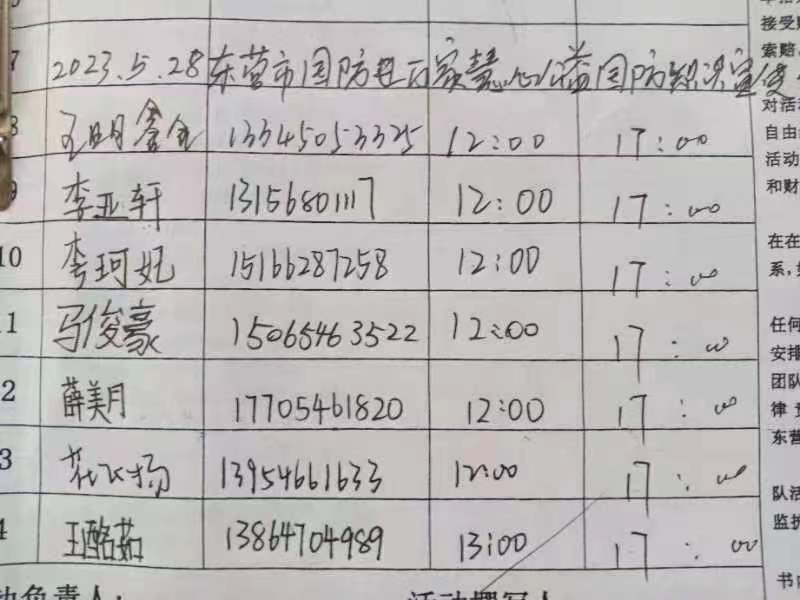 7 2023.5.28东营市国防 慧心公益国防知识宣传
8 王明鑫 13345053325 12:00 17:00
9 李亚轩 13156801117 12:00 17:00
10 李珂妃 15166287258 12:00 17:00
1 马俊豪 15065463522 12:00 17:00
2 薛美月 17705461820 12:00 17:00
3 花飞扬 13954661633 12:00 17:00
4 王酩茹 13864704989 13:00 17:00
动负责人: 活动撰写人
接受
索赔
对活
自由
活动
和财
在在
系,
任何
安排
团队
律责
东营
队活
监护
书